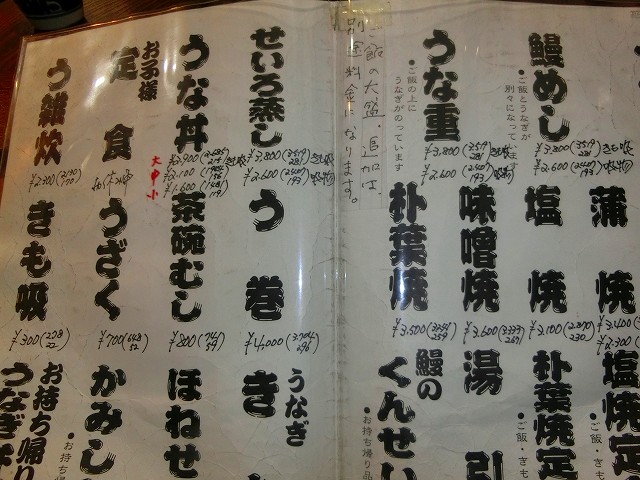 鰻めし
●ご飯とうなぎが
別々になって
¥3,800(3519/281)きも吸
¥2,600(2407/193)吸物
うな重
●ご飯の上に
うなぎがのっています
¥3,800(3519/281)きも吸
¥2,600(2407/193)吸物
蒲焼
¥3,400
¥2,300
塩焼
¥3,100(2870/230)
味噌焼
¥3,600(3333/267)
朴葉焼
¥3,500
塩焼定
●ご飯・きも
朴葉焼定
●ご飯・きも
湯引
鰻の
くんせい
●お持ち帰り品
ご飯の大盛、追加は、
別途料金になります。
せいろ蒸し
¥3,800(3519/281)きも吸
¥2,600(2407/193)吸物
うな丼
大
中
小
¥1,600
お子様
定食
う雑炊
¥2,300(2130/170)
う巻
¥4,000(3704/296)
茶碗むし
¥800(741/59)
うざく
¥700(648/52)
きも吸
¥300(278/22)
うなぎ
き
ほねせ
かみし
お持ち帰り
うなぎ